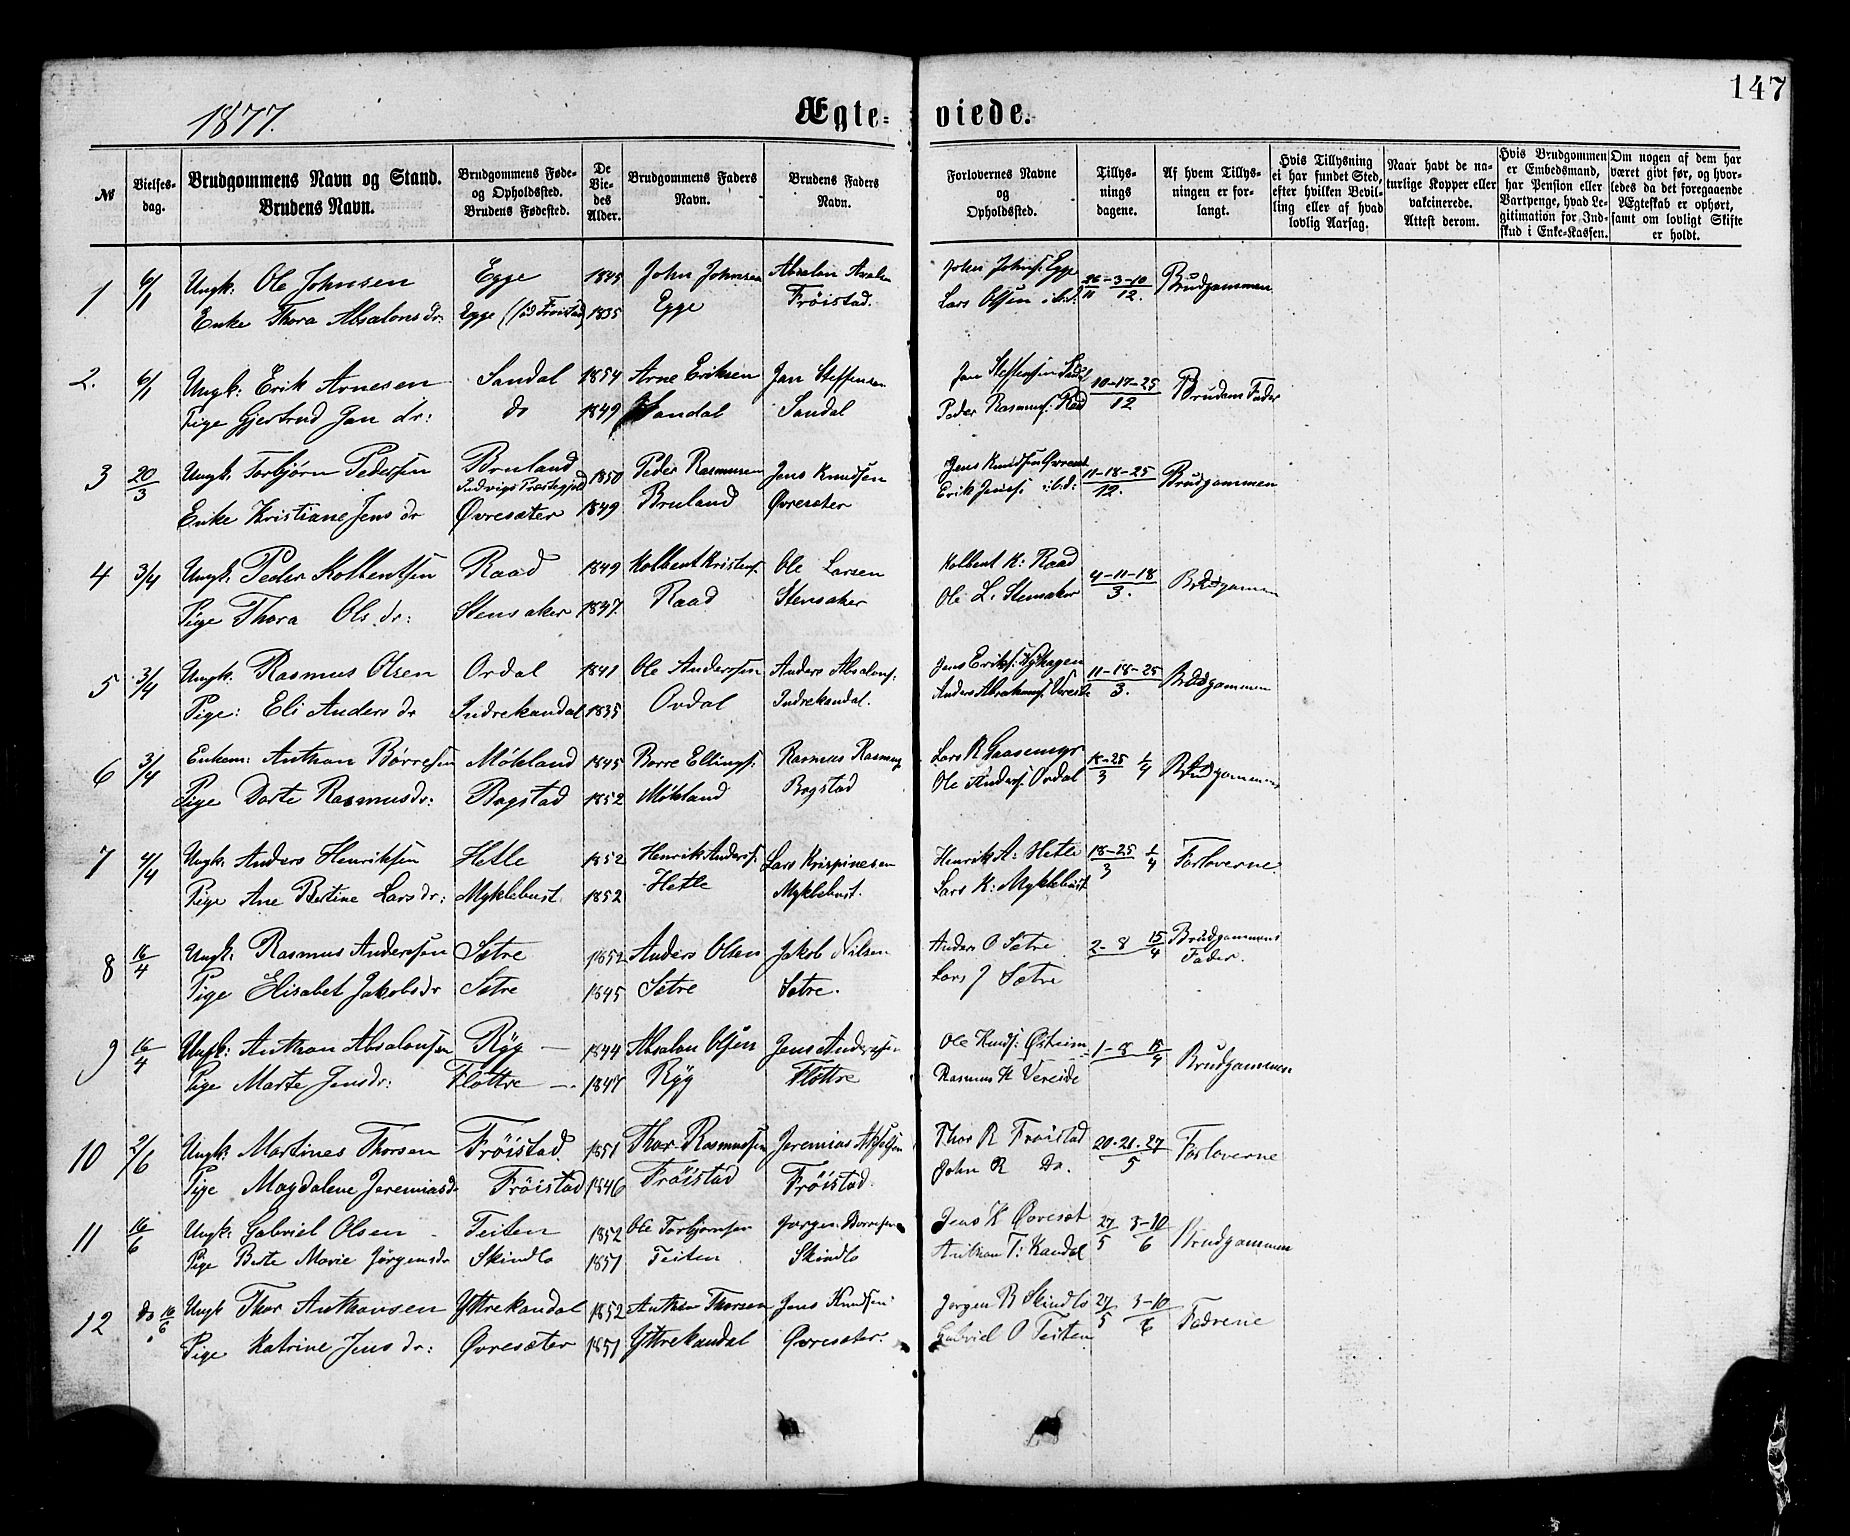 147
1877.
Ægte-viede.
№
Vielses-dag.
Brudgommens Navn og Stand.
Brudens Navn.
Brudgommens Føde-
og Opholdssted.
Brudens Fødested.
De
Vie-
des
Alder.
Brudgommens Faders
Navn.
Brudens Faders
Navn.
Forlovernes Navne
og
Opholdssted.
Tillys-
nings
dagene.
Af hvem Tillys-
ningen er for-
langt.
Hvis Tillysning
ei har fundet Sted,
efter hvilken Bevil-
ling eller af hvad
lovlig Aarsag.
Naar havt de na-
turlige Kopper eller
vakcinerede.
Attest derom.
Hvis Brudgommen
er Embedsmand,
har Pension eller
Vartpenge, hvad Le-
gitimation for Ind-
skud i Enke-Kassen.
Om nogen af dem har
været givt før, og hvor-
ledes da det foregaaende
Ægteskab er ophørt,
samt om lovligt Skifte
er holdt.
1 6/1 Ungk: Ole Johnsen Egge 1845 John Johnsen Absalon John Johns: Egge 26/11 3-10/12. Brudgommen
Enke Thora Absalonsdr: Egge (fød Frøistad) 1835 Egge Frøistad. Lars Olsen ibid:
2. 6/1 Ungk: Erik Arnesen Sandal 1854 Arne Eriksen Jan Steffensen Jan Steffensen 10-17-25/12 Brudens Fader
Pige Gjertrud Jan dr: do 1849 Sandal Sandal Peder Rasmus:
3 20/3 Ungk. Torbjørn Pederssen Bruland 1850 Peder Rasmusen Jens Knudsen Jens Knudsen 11-18-25/12. Brudgommen
Indvigs Præstegjeld
Enke Kristiane Jens dr Øvresæter 1849 Bruland Øvresæter Erik Jens: ibd:
4 3/4 Ungk. Peder Kolbentsen Raad 1849 Kolbent Kristens: Ole Larsen Kolbent K: Raad 4-11-18/3. Brudgommen
Pige Thora Ols dr: Stensaker 1847. Raad Stensaker Ole L. Stensaker
5 3/4 Ungk: Rasmus Olsen Ordal 1841 Ole Anderssen Anders Absalons: Jens Eriks: 11-18-25/3. Brudgommen
Pige: Eli Anders dr Indrekandal 1835 Ordal Indrekandal. Anders
6 3/4 Enkem: Anthon Børresen Møkland 1845 Borre Ellings: Rasmus Rasmus: Lars R Gaasemyr 18-25/3 1/4 Brudgommen
Pige Dorte Rasmusdr: Bogstad 1852 Møkland Bogstad Ole Anders: Ordal
7 4/4 Ungk: Anders Henriksen Hetle 1852 Henrik Anders: Lars Krispinesen Henrik A: Hetle 18-25/3 1/4 Forloverne.
Pige Ane Bertine Larsdr: Myklebust. 1852 Hetle Myklebust. Lars K: Myklebust
8 16/4 Ungk: Rasmus Anderssen Sætre 1852 Anders Olsen Jakob Nilsen Anders O Sætre 2-8 15/4 Brudgommens
Fader.
Pige Elisabet Jakobsdr Sætre 1845 Sætre Sætre. Lars J Sætre
9 16/4 Ungk: Anthon Absalonsen Ryg 1844 Absalon Olsen Jens Anderssen Ole Knuds: 1-8 15/4 Brudgommen
Pige Marte Jensdr: Flottre 1847 Ryg Flottre Rasmus K Vereide
10 2/6 Ungk: Martines Thorsen Frøistad. 1851 Thor Rasmussen Jeremias Thor R Frøistad 20-21-27/5 Forloverne
Pige Magdalene Jeremiasd. Frøistad 1846 Frøistad Frøistad. John R Do.
11 16/6 Ungk: Gabriel Olsen Teiten 1852 Ole Torbjørnsen Jørgen Børresen Jens K Øvresæt 27/5 3-10/6 Brudgommen
Pige Berte Marie Jørgensdr Skindlo 1851 Teiten Skindlo Anthon T: Kandal
12 do 16/6 Ungk Thor Anthonsen Yttrekandal 1852 Anthon Thorsen Jens Knudsen Jørgen B Skindlo 27/5 3-10/6 Fædrene
Pige Katrine Jens dr: Øvresæter 1851 Yttrekandal Øvresæter. Gabriel O Teiten